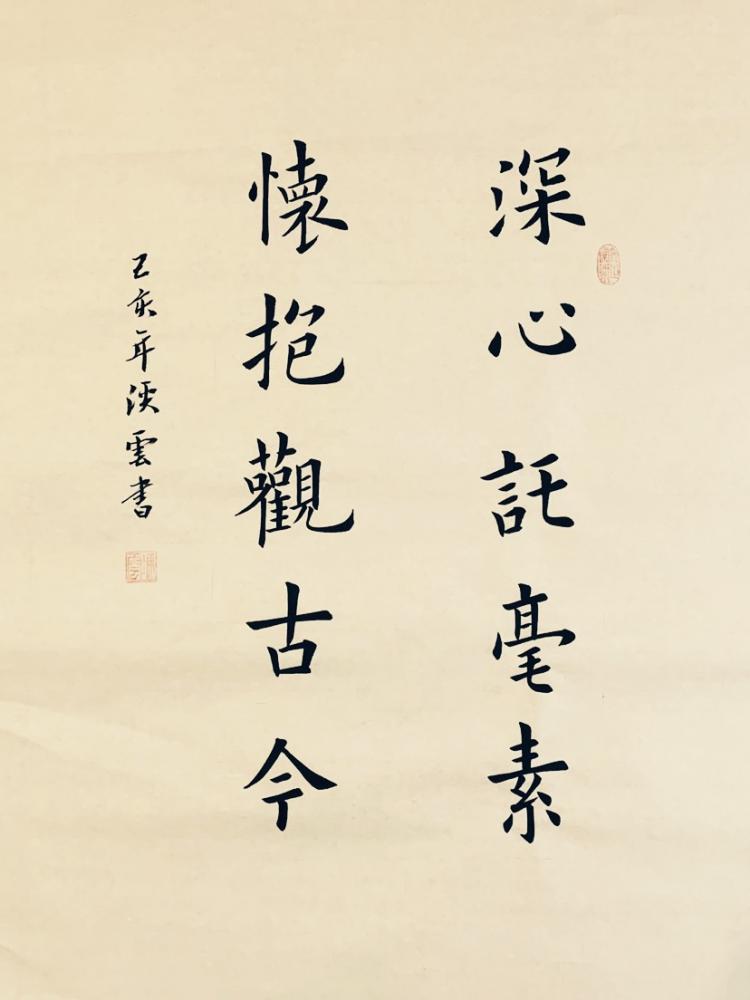 深心託毫素
懷抱觀古今
己亥年渓雲書